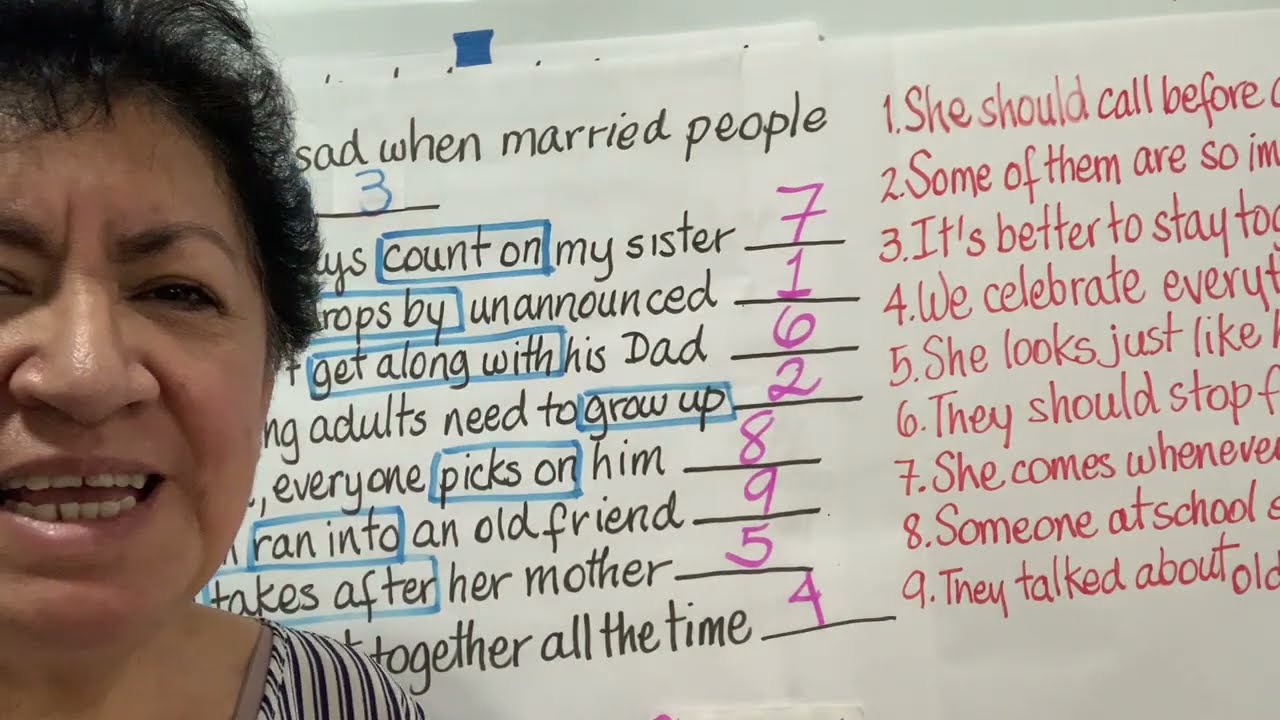 sad when married people
3
count on my sister 7
by unannounced 1
get along with his Dad 6
adults need to grow up 2
everyone picks on him 8
ran into an old friend 9
takes after her mother 5
together all the time 4
1. She should call before
2. Some of them are so
3. It's better to stay
4. We celebrate
5. She looks just like
6. They should stop
7. She comes whenever
8. Someone at school
9. They talked about old